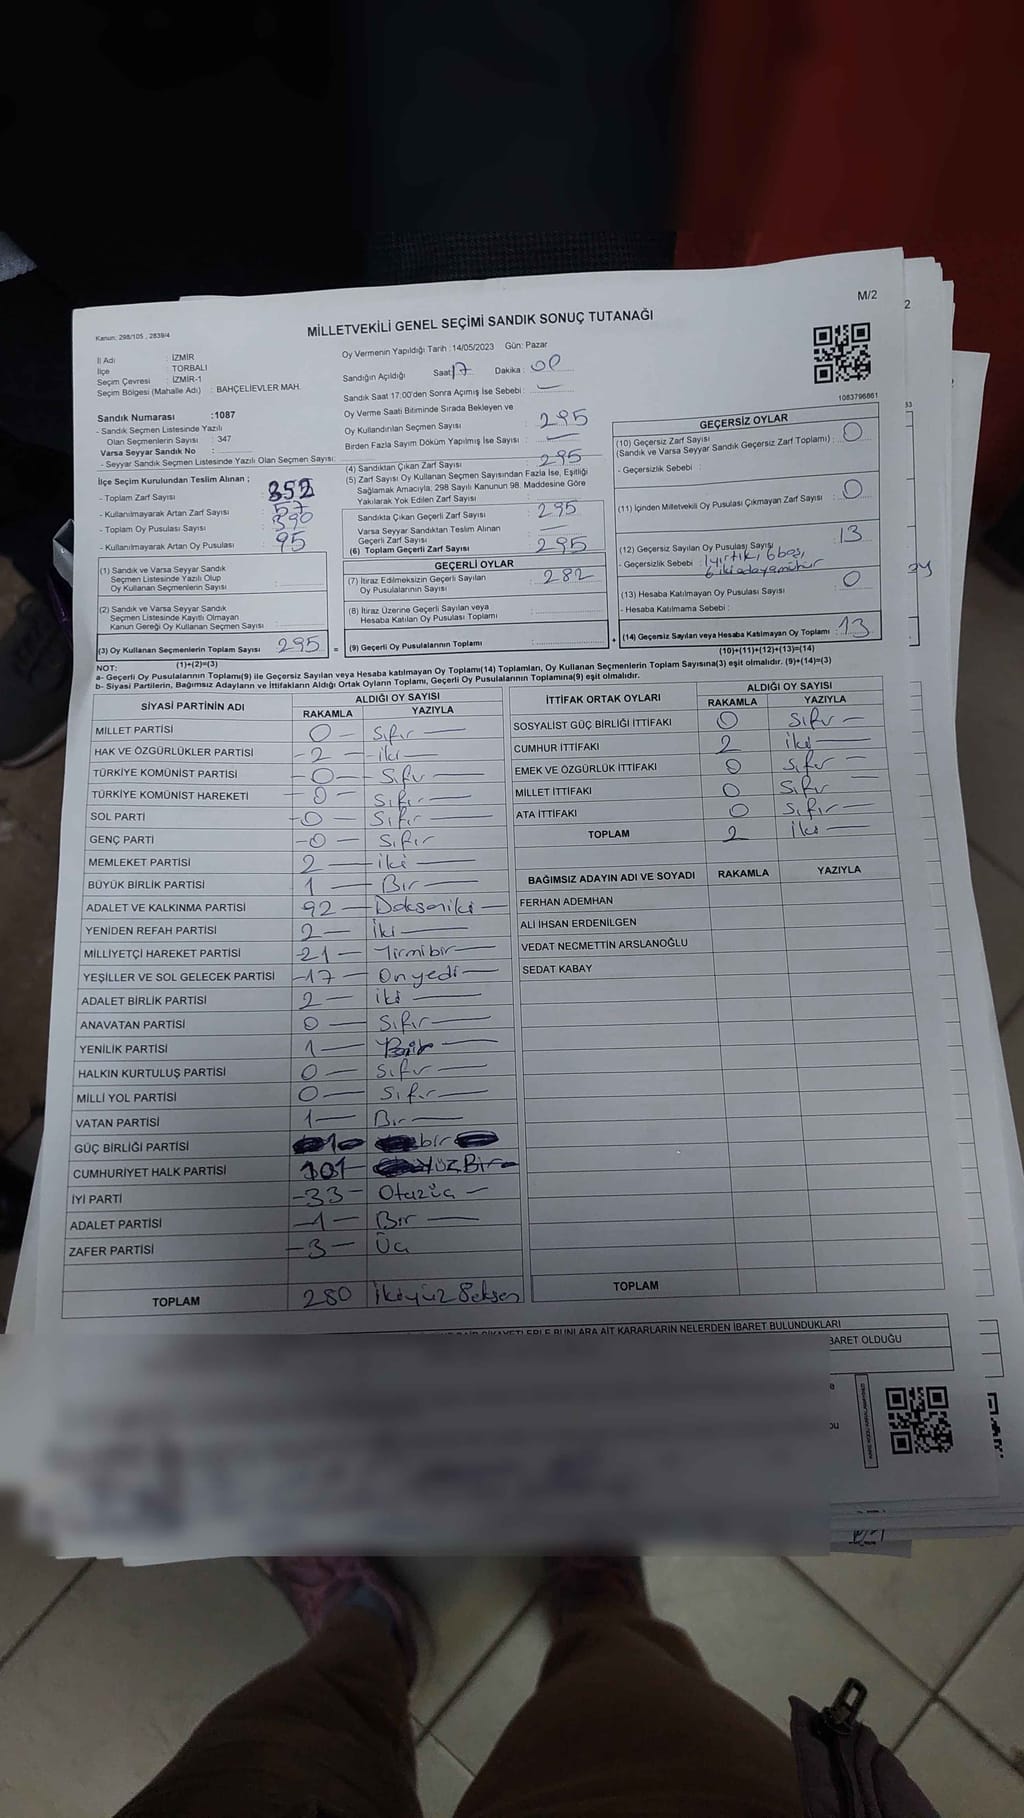 M/2
Kanun: 298/105 , 2839/4
MİLLETVEKİLİ GENEL SEÇİMİ SANDIK SONUÇ TUTANAĞI
İl Adı : İZMİR
İlçe : TORBALI
Seçim Çevresi : İZMİR-1
Seçim Bölgesi (Mahalle Adı) : BAHÇELİEVLER MAH.
Sandık Numarası :1087
- Sandık Seçmen Listesinde Yazılı
Olan Seçmenlerin Sayısı : 347
Varsa Seyyar Sandık No :
- Seyyar Sandık Seçmen Listesinde Yazılı Olan Seçmen Sayısı:
İlçe Seçim Kurulundan Teslim Alınan ;
- Toplam Zarf Sayısı : 352
- Kullanılmayarak Artan Zarf Sayısı : 57
- Toplam Oy Pusulası Sayısı : 390
- Kullanılmayarak Artan Oy Pusulası : 95
(1) Sandık ve Varsa Seyyar Sandık
Seçmen Listesinde Yazılı Olup
Oy Kullanan Seçmenlerin Sayısı :
(2) Sandık ve Varsa Seyyar Sandık
Seçmen Listesinde Kayıtlı Olmayan
Kanun Gereği Oy Kullanan Seçmen Sayısı :
(3) Oy Kullanan Seçmenlerin Toplam Sayısı : 295 =
(1)+(2)=(3)
Oy Vermenin Yapıldığı Tarih : 14/05/2023 Gün: Pazar
Sandığın Açıldığı Saat: 17 Dakika : 00
Sandık Saat 17:00'den Sonra Açımış İse Sebebi : —
Oy Verme Saati Bitiminde Sırada Bekleyen ve
Oy Kullandırılan Seçmen Sayısı : 295
Birden Fazla Sayım Döküm Yapılmış İse Sayısı : —
(4) Sandıktan Çıkan Zarf Sayısı : 295
(5) Zarf Sayısı Oy Kullanan Seçmen Sayısından Fazla İse, Eşitliği
Sağlamak Amacıyla; 298 Sayılı Kanunun 98. Maddesine Göre
Yakılarak Yok Edilen Zarf Sayısı : —
Sandıkta Çıkan Geçerli Zarf Sayısı : 295
Varsa Seyyar Sandıktan Teslim Alınan
Geçerli Zarf Sayısı : —
(6) Toplam Geçerli Zarf Sayısı : 295
GEÇERLİ OYLAR
(7) İtiraz Edilmeksizin Geçerli Sayılan
Oy Pusulalarının Sayısı : 282
(8) İtiraz Üzerine Geçerli Sayılan veya
Hesaba Katılan Oy Pusulası Toplamı :
(9) Geçerli Oy Pusulalarının Toplamı : +
1083796861
GEÇERSİZ OYLAR
(10) Geçersiz Zarf Sayısı
(Sandık ve Varsa Seyyar Sandık Geçersiz Zarf Toplamı) : 0
- Geçersizlik Sebebi :
(11) İçinden Milletvekili Oy Pusulası Çıkmayan Zarf Sayısı : 0
(12) Geçersiz Sayılan Oy Pusulası Sayısı : 13
- Geçersizlik Sebebi : 1 yırtık, 6 boş,
6 iki adaya mühür
(13) Hesaba Katılmayan Oy Pusulası Sayısı : 0
- Hesaba Katılmama Sebebi :
(14) Geçersiz Sayılan veya Hesaba Katılmayan Oy Toplamı : 13
(10)+(11)+(12)+(13)=(14)
NOT:
a- Geçerli Oy Pusulalarının Toplamı(9) ile Geçersiz Sayılan veya Hesaba katılmayan oy Toplamı(14) Toplamları, Oy Kullanan Seçmenlerin Toplam Sayısına(3) eşit olmalıdır. (9)+(14)=(3)
b- Siyasi Partilerin, Bağımsız Adayların ve İttifakların Aldığı Ortak Oyların Toplamı, Geçerli Oy Pusulalarının Toplamına(9) eşit olmalıdır.
SİYASİ PARTİNİN ADI ALDIĞI OY SAYISI
RAKAMLA YAZIYLA
MİLLET PARTİSİ 0 — Sıfır —
HAK VE ÖZGÜRLÜKLER PARTİSİ - 2 — - iki —
TÜRKİYE KOMÜNİST PARTİSİ - 0 — Sıfır —
TÜRKİYE KOMÜNİST HAREKETİ - 0 — Sıfır —
SOL PARTİ - 0 — Sıfır —
GENÇ PARTİ - 0 — Sıfır
MEMLEKET PARTİSİ 2 — iki —
BÜYÜK BİRLİK PARTİSİ 1 — Bir —
ADALET VE KALKINMA PARTİSİ 92 — Doksaniki —
YENİDEN REFAH PARTİSİ 2 — iki —
MİLLİYETÇİ HAREKET PARTİSİ - 21 — Yirmibir —
YEŞİLLER VE SOL GELECEK PARTİSİ - 17 — Onyedi —
ADALET BİRLİK PARTİSİ 2 — iki —
ANAVATAN PARTİSİ 0 — Sıfır —
YENİLİK PARTİSİ 1 — Bir —
HALKIN KURTULUŞ PARTİSİ 0 — Sıfır —
MİLLİ YOL PARTİSİ 0 — Sıfır —
VATAN PARTİSİ 1 — Bir —
GÜÇ BİRLİĞİ PARTİSİ 1 bir
CUMHURİYET HALK PARTİSİ 101 — YüzBir —
İYİ PARTİ - 33 — Otuzüç —
ADALET PARTİSİ - 1 — Bir —
ZAFER PARTİSİ - 3 — Üç
TOPLAM 280 İkiyüz Seksen
İTTİFAK ORTAK OYLARI ALDIĞI OY SAYISI
RAKAMLA YAZIYLA
SOSYALİST GÜÇ BİRLİĞİ İTTİFAKI 0 Sıfır —
CUMHUR İTTİFAKI 2 iki —
EMEK VE ÖZGÜRLÜK İTTİFAKI 0 Sıfır —
MİLLET İTTİFAKI 0 Sıfır
ATA İTTİFAKI 0 Sıfır —
TOPLAM 2 İki —
BAĞIMSIZ ADAYIN ADI VE SOYADI RAKAMLA YAZIYLA
FERHAN ADEMHAN
ALİ İHSAN ERDENİLGEN
VEDAT NECMETTİN ARSLANOĞLU
SEDAT KABAY
TOPLAM
BUNLARA AİT KARARLARIN NELERDEN İBARET BULUNDUKLARI
BARET OLDUĞU